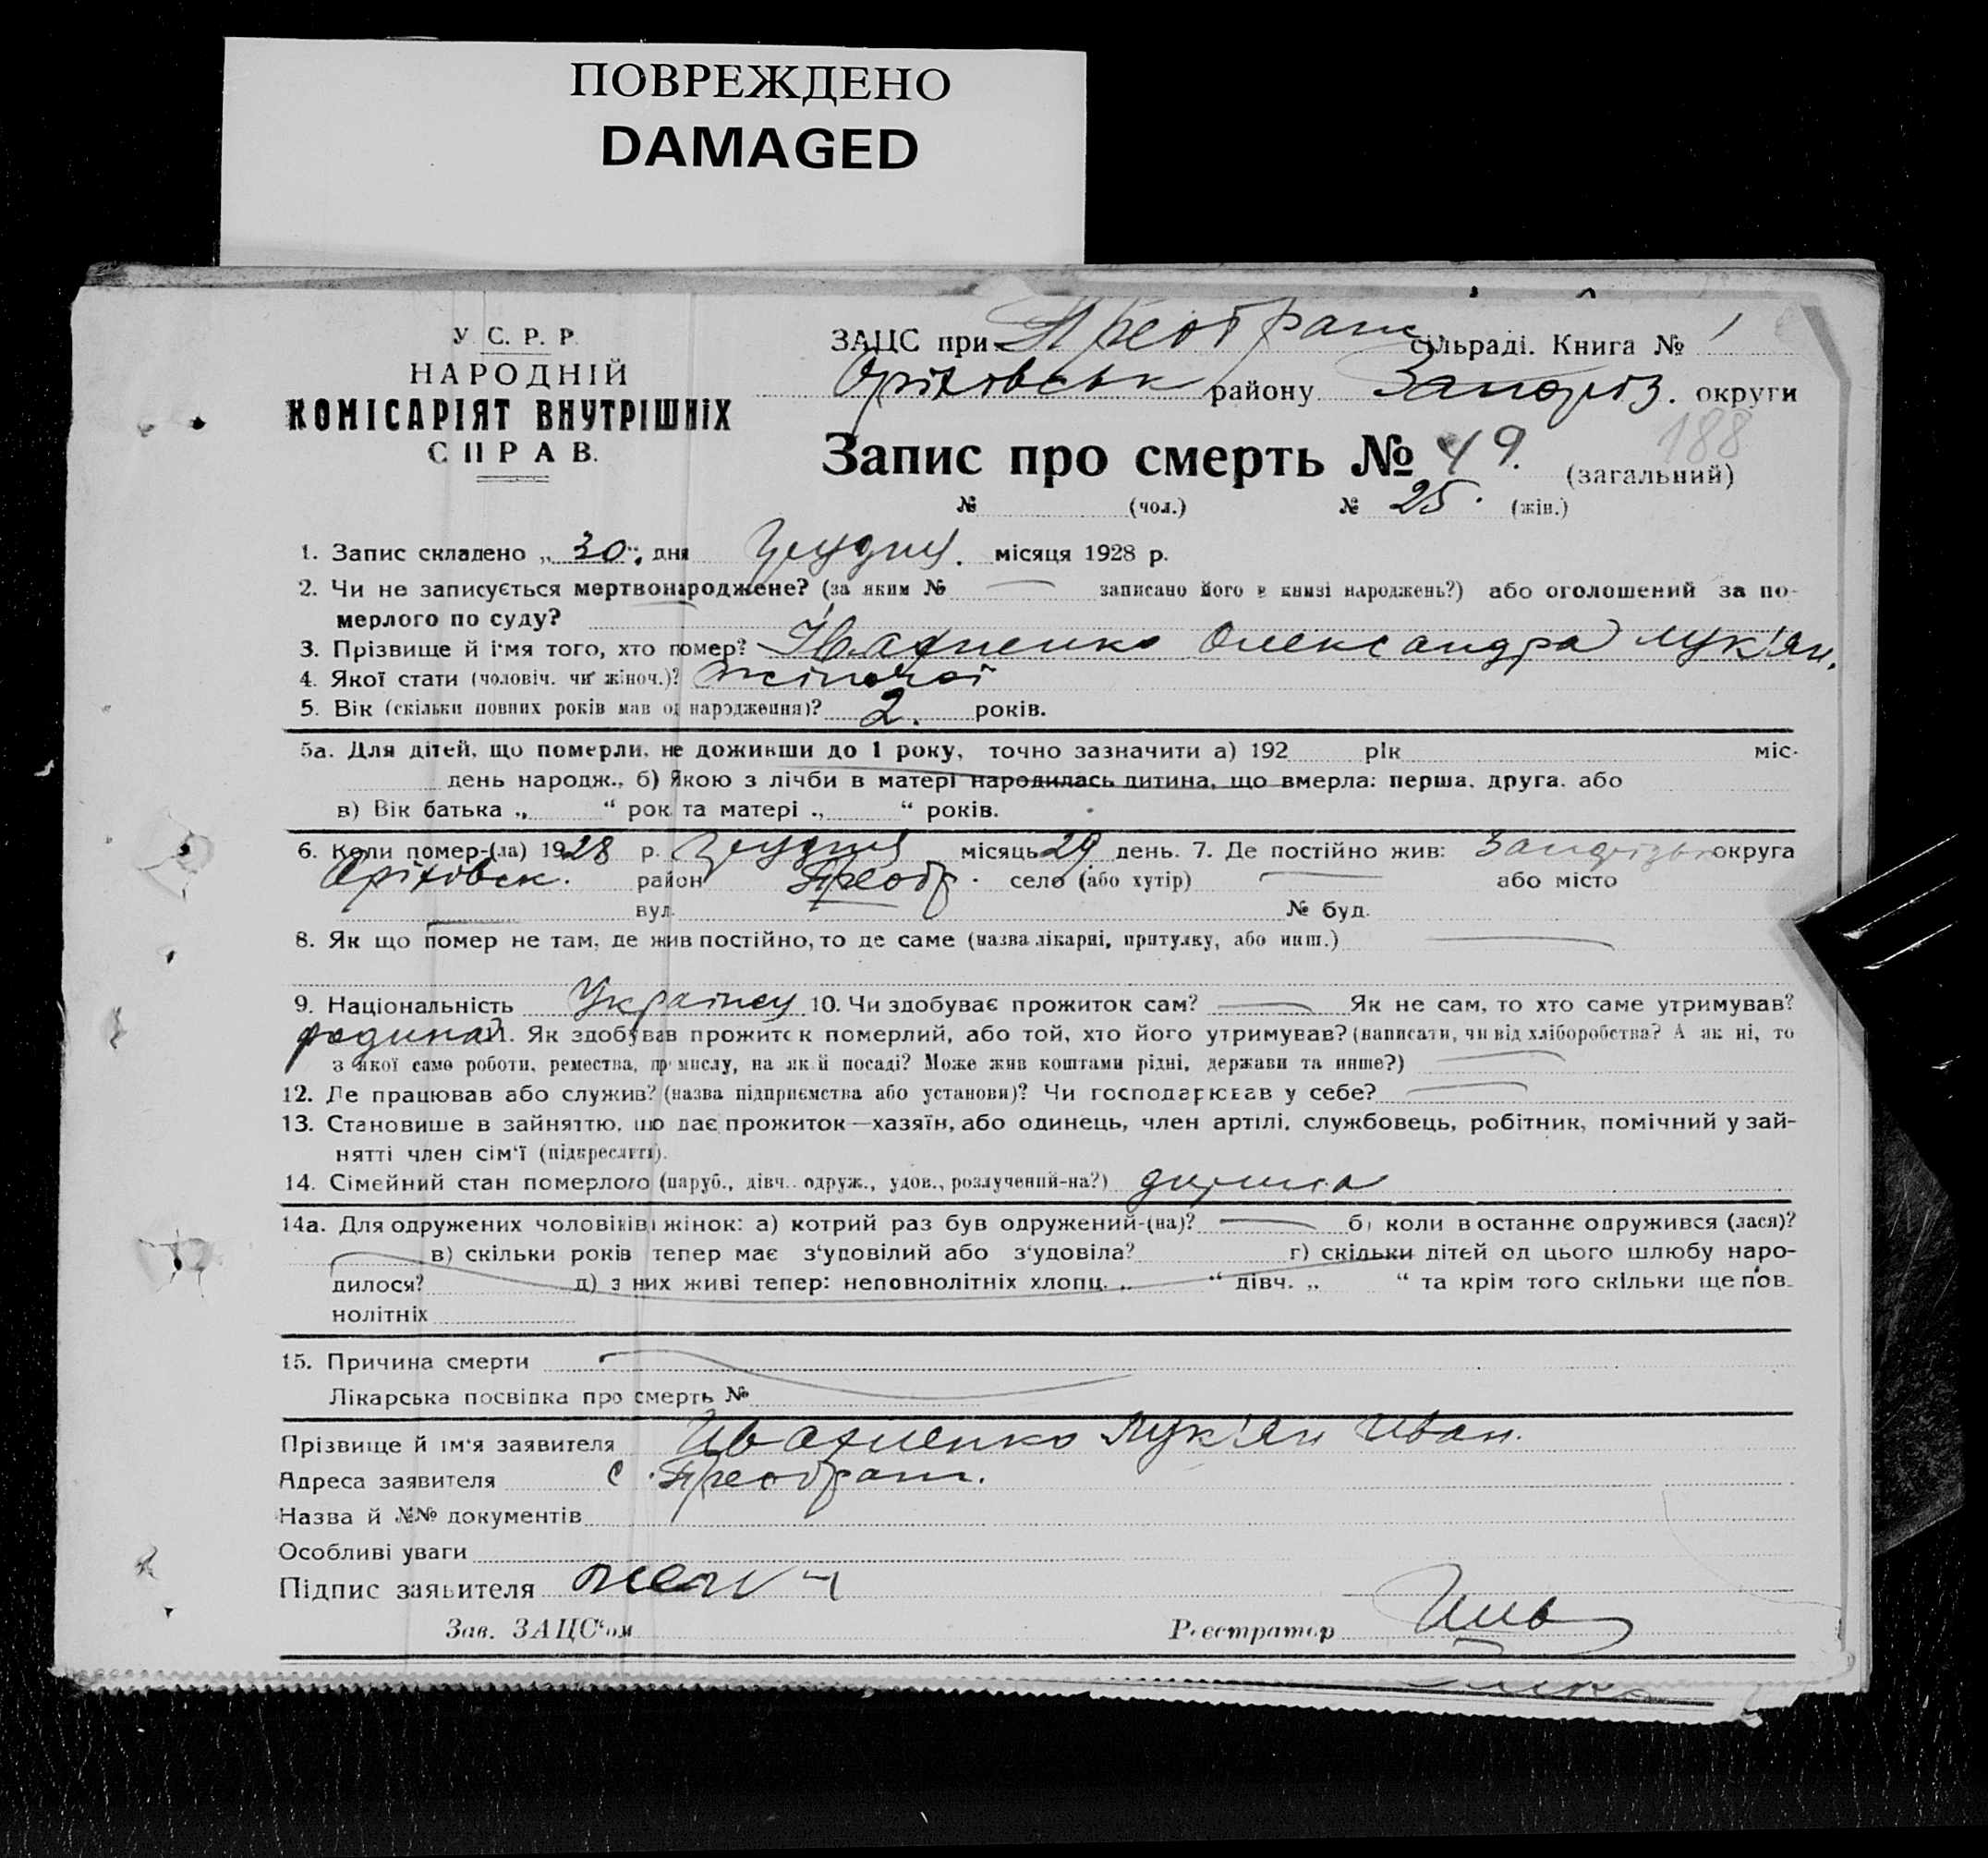 ПОВРЕЖДЕНО
DAMAGED
У. С. Р. Р.
НАРОДНІЙ
КОМІСАРІЯТ ВНУТРІШНІХ
СПРАВ.
ЗАЦС при Преображ сільраді. Книга № 1
Оріховськ району Запоріз. округи
188
Запис про смерть № 49. (загальний)
№ (чол.) № 25. (жін.)
1. Запис складено „30“ дня грудня. місяця 1928 р.
2. Чи не записується мертвонароджене? (за яким № — записано його в книзі народжень?) або оголошений за по-
мерлого по суду?
3. Прізвище й ім'я того, хто помер? Івахненко Олександра Лук'ян.
4. Якої стати (чоловіч. чи жіноч.)? жіночої
5. Вік (скільки повних років мав од народження)? 2. років.
5а. Для дітей, що померли, не доживши до 1 року, точно зазначити а) 192 рік міс.
день народж., б) Якою з лічби в матері народилась дитина, що вмерла: перша, друга. або
в) Вік батька „ “ рок. та матері „ “ років.
6. Коли помер-(ла) 1928 р. грудня місяць 29 день. 7. Де постійно жив: Запорізько округа
Оріховськ. район Преобр. село (або хутір) — або місто
вул. № буд.
8. Як що помер не там, де жив постійно, то де саме (назва лікарні, притулку, або инш.) —
9. Національність Українц 10. Чи здобуває прожиток сам? — Як не сам, то хто саме утримував?
родина 11. Як здобував прожиток померлий, або той, хто його утримував? (написати, чи від хліборобства? А як ні, то
з якої саме роботи, ремества, промислу, на якій посаді? Може жив коштами рідні, держави та инше?) —
12. Де працював або служив? (назва підприємства або установи)? Чи господарював у себе? —
13. Становище в зайняттю, що дає прожиток—хазяїн, або одинець, член артілі, службовець, робітник, помічний у зай-
нятті член сім'ї (підкреслити).
14. Сімейний стан померлого (паруб., дівч. одруж., удов., розлучений-на?)
14а. Для одружених чоловіків і жінок: а) котрий раз був одружений-(на)? — б) коли в останнє одружився (лася)?
в) скільки років тепер має з'удовілий або з'удовіла? г) скільки дітей од цього шлюбу наро-
дилося? д) з них живі тепер: неповнолітніх хлопц. „ “ дівч. „ “ та крім того скільки ще пов-
нолітніх
15. Причина смерти
Лікарська посвідка про смерть №
Прізвище й ім'я заявителя Ивахненко Лук'ян Иван.
Адреса заявителя с. Преображ.
Назва й №№ документів
Особливі уваги
Підпис заявителя
Зав. ЗАЦС'ом Реєстратор